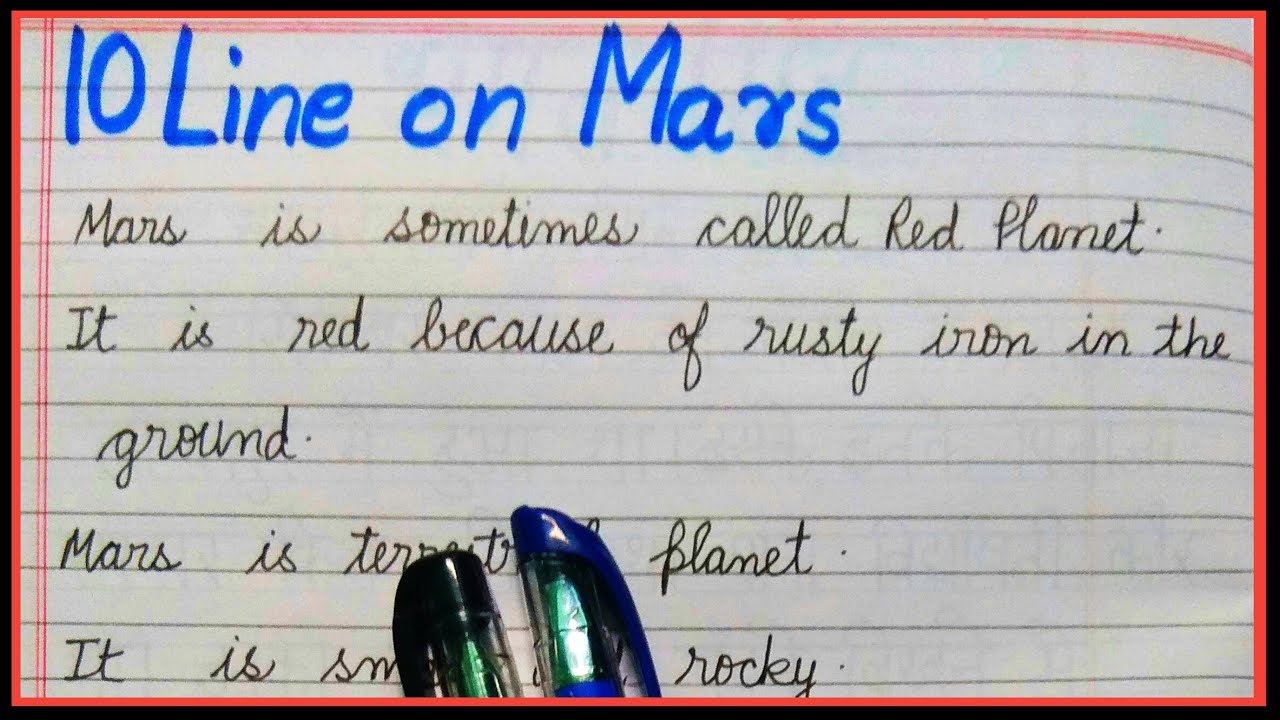 10 Line on Mars
Mars is sometimes called Red Planet.
It is red because of rusty iron in the
ground.
Mars is planet.
It is rocky.